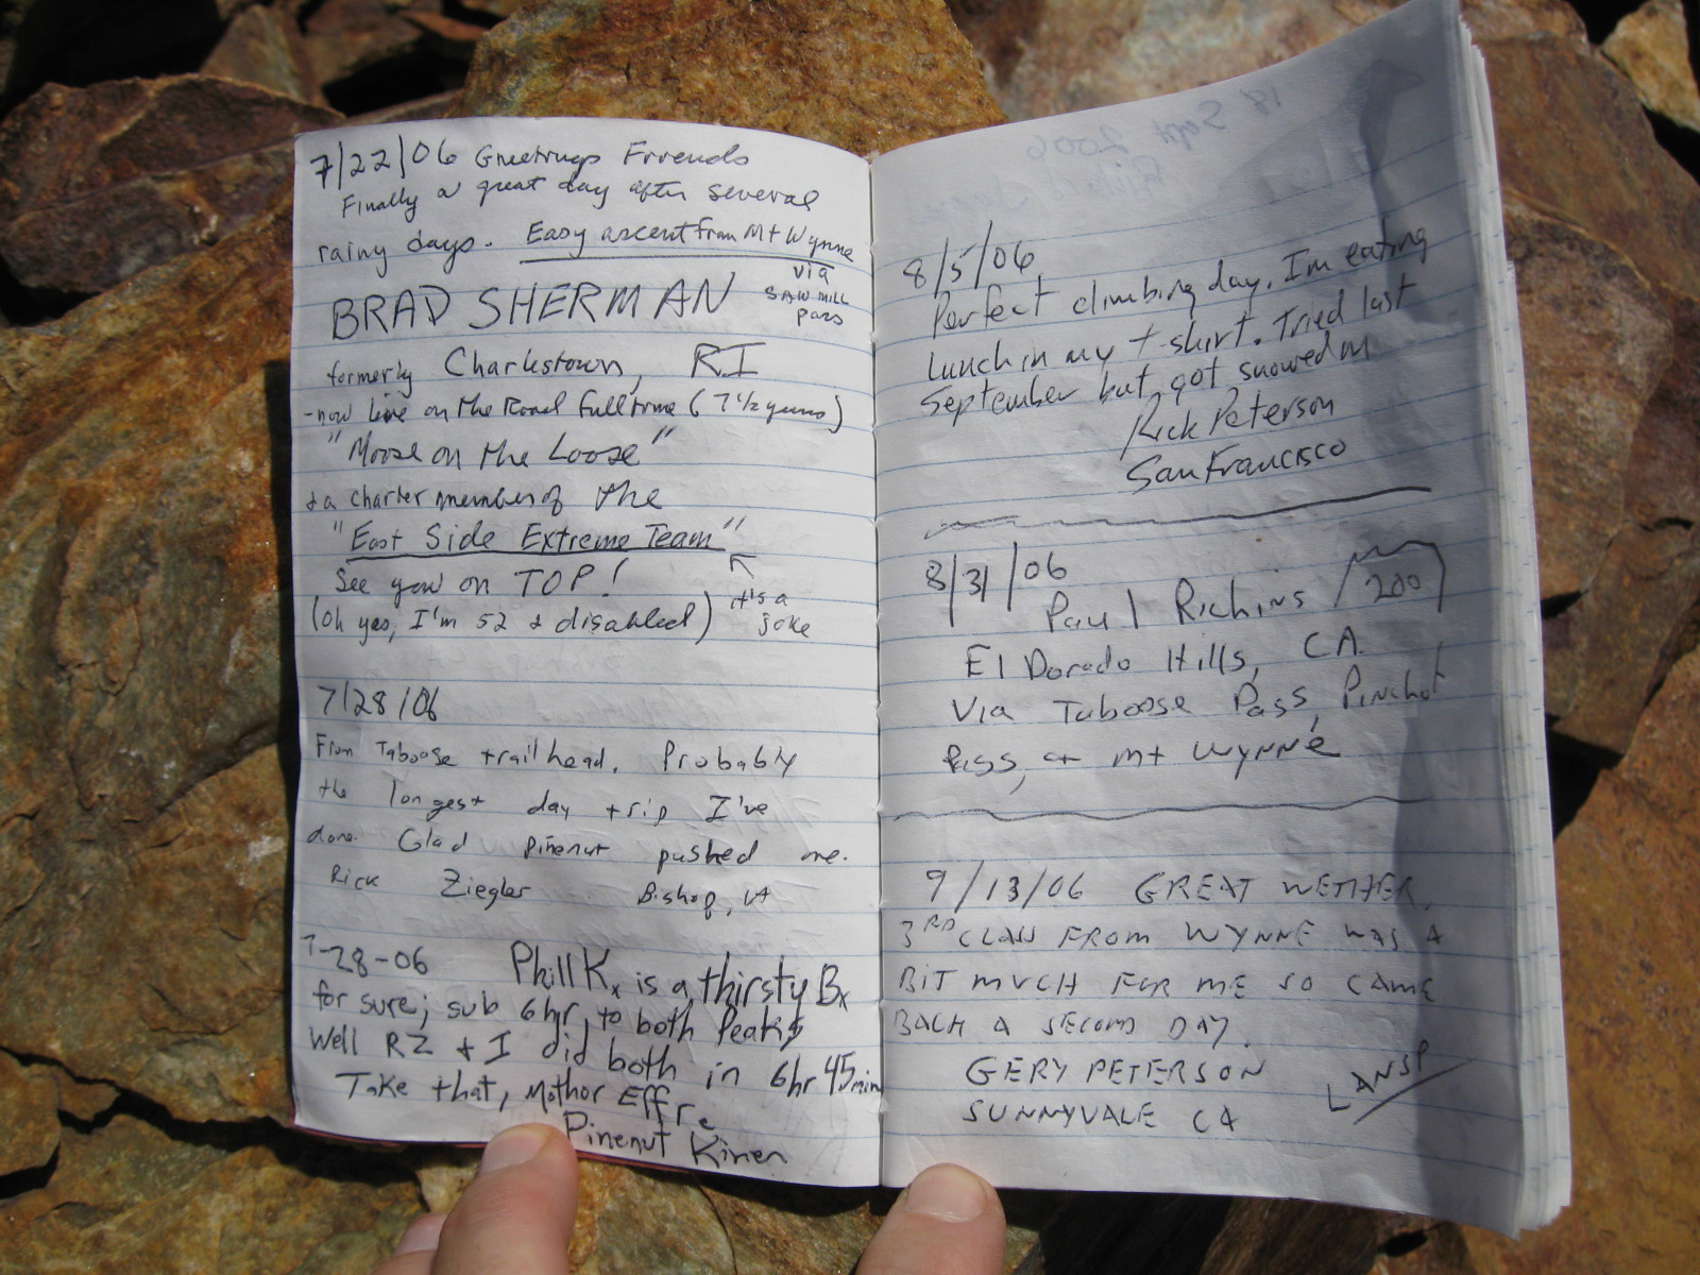 7/22/06 Greetings Friends
Finally a great day after several
rainy days. Easy ascent from Mt Wynne
via
SAWMILL
pass
BRAD SHERMAN
formerly Charlestown, RI
-now live on the Road full time (7 1/2 years)
"Moose on the Loose"
& a charter member of the
"East Side Extreme Team"
See you on TOP!
(Oh yes, I'm 52 & disabled)
it's a
joke
7/28/06
From Taboose trailhead. Probably
the longest day trip I've
done. Glad Pinenut pushed me.
Rick Ziegler Bishop, CA
7-28-06 Phill K, is a thirsty Bx
for sure; sub 6hr, to both Peaks
Well RZ + I did both in 6hr 45min
Take that, Mother Effre
Pinenut
18 Sept 2006
8/5/06
Perfect climbing day. Im eating
lunch in my t-shirt. Tried last
September but got snowed on
Rick Peterson
San Francisco
8/31/06
Paul Richins / 200
El Dorado Hills, CA.
Via Taboose Pass, Pinchot
Pass, & Mt Wynne
9/13/06 GREAT WETHER.
3RD CLASS FROM WYNNE WAS A
BIT MUCH FOR ME SO CAME
BACK A SECOND DAY.
GERY PETERSON
SUNNYVALE CA